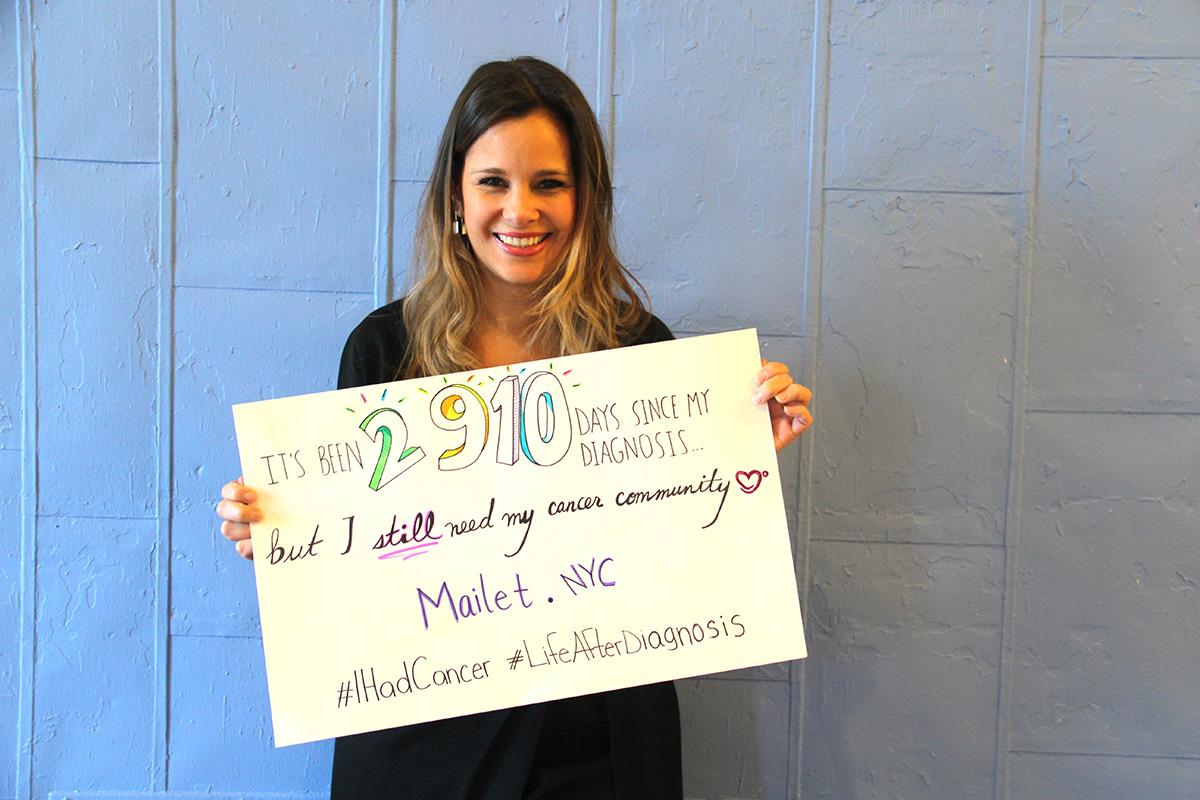 IT'S BEEN 2910 DAYS SINCE MY
DIAGNOSIS...
but I still need my cancer community
Mailet. NYC
#IHadCancer #LifeAfterDiagnosis